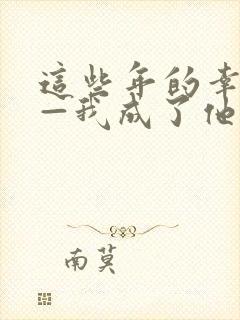 這些年的幸
—我成了他
南莫